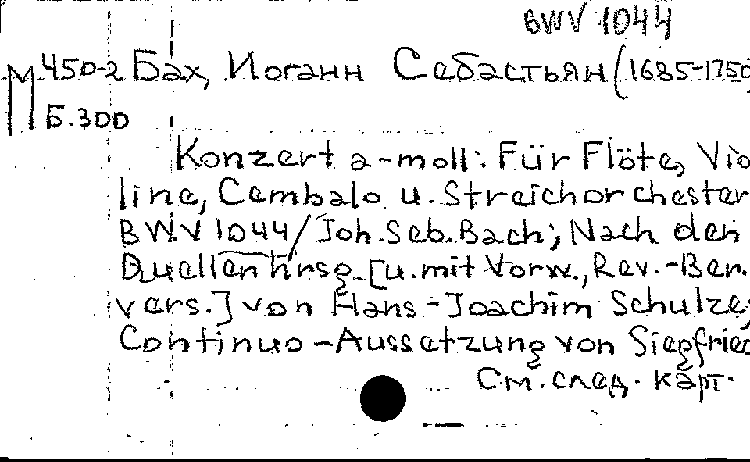 BWV 1044
М 450-2 Бах, Иоганн Себастьян (1685-1750
Б.300
Konzert a-moll: Für Flöte, Vio
line, Cembalo u. Streichorchester
BWV 1044/Joh. Seb. Bach; Nach den
Quellen hrsg. [u. mit Vorw., Rev.-Ber.
vers.] von Hans-Joachim Schulze,
Continuo-Aussetzung von Siegfried
См. след. карт.